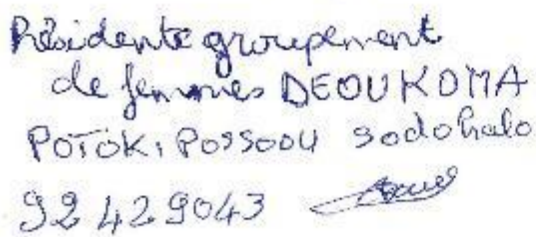 Présidente groupement
de femmes DEOUKOMA
POTOKI POSSOOU Sodohalo
92 42 90 43